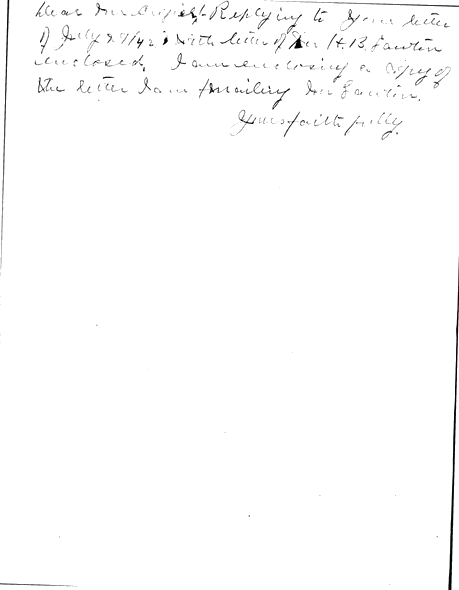 Dear Mr Replying to your letter
of July 27/42 with letter of Mr H.B. Lawton
enclosed, I am enclosing a copy of
the letter I am mailing Mr Lawton.
Yours faithfully.